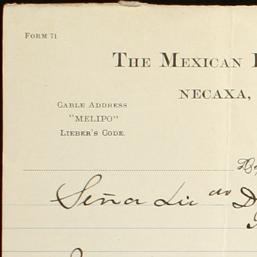 FORM 71
THE MEXICAN
NECAXA,
CABLE ADDRESS
"MELIPO"
LIEBER'S CODE.
Señor Lic do D